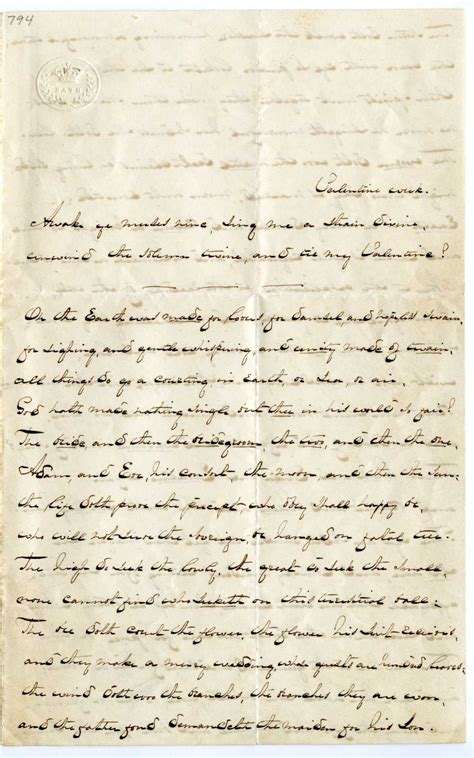 794
Valentine week.
Awake ye muses nine, sing me a strain divine,
unwind the solemn twine, and tie my Valentine!
Oh the Earth was made for lovers, for damsel, and hopeless swain,
for sighing, and gentle whispering, and unity made of twain,
all things do go a courting in earth, or sea, or air,
God hath made nothing single but thee in his world so fair!
The bride, and then the bridegroom, the two, and then the one,
Adam, and Eve, his consort, the moon, and then the sun;
the life doth prove the precept, who obey shall happy be,
who will not serve the sovreign, be hanged on fatal tree.
The high do seek the lowly, the great do seek the small,
none cannot find who seeketh on this terrestrial ball;
The bee doth court the flower, the flower his suit receives,
and they make a merry wedding, whose guests are hundred leaves;
the wind doth woo the branches, the branches they are won,
and the father fond demandeth the maiden for his son.